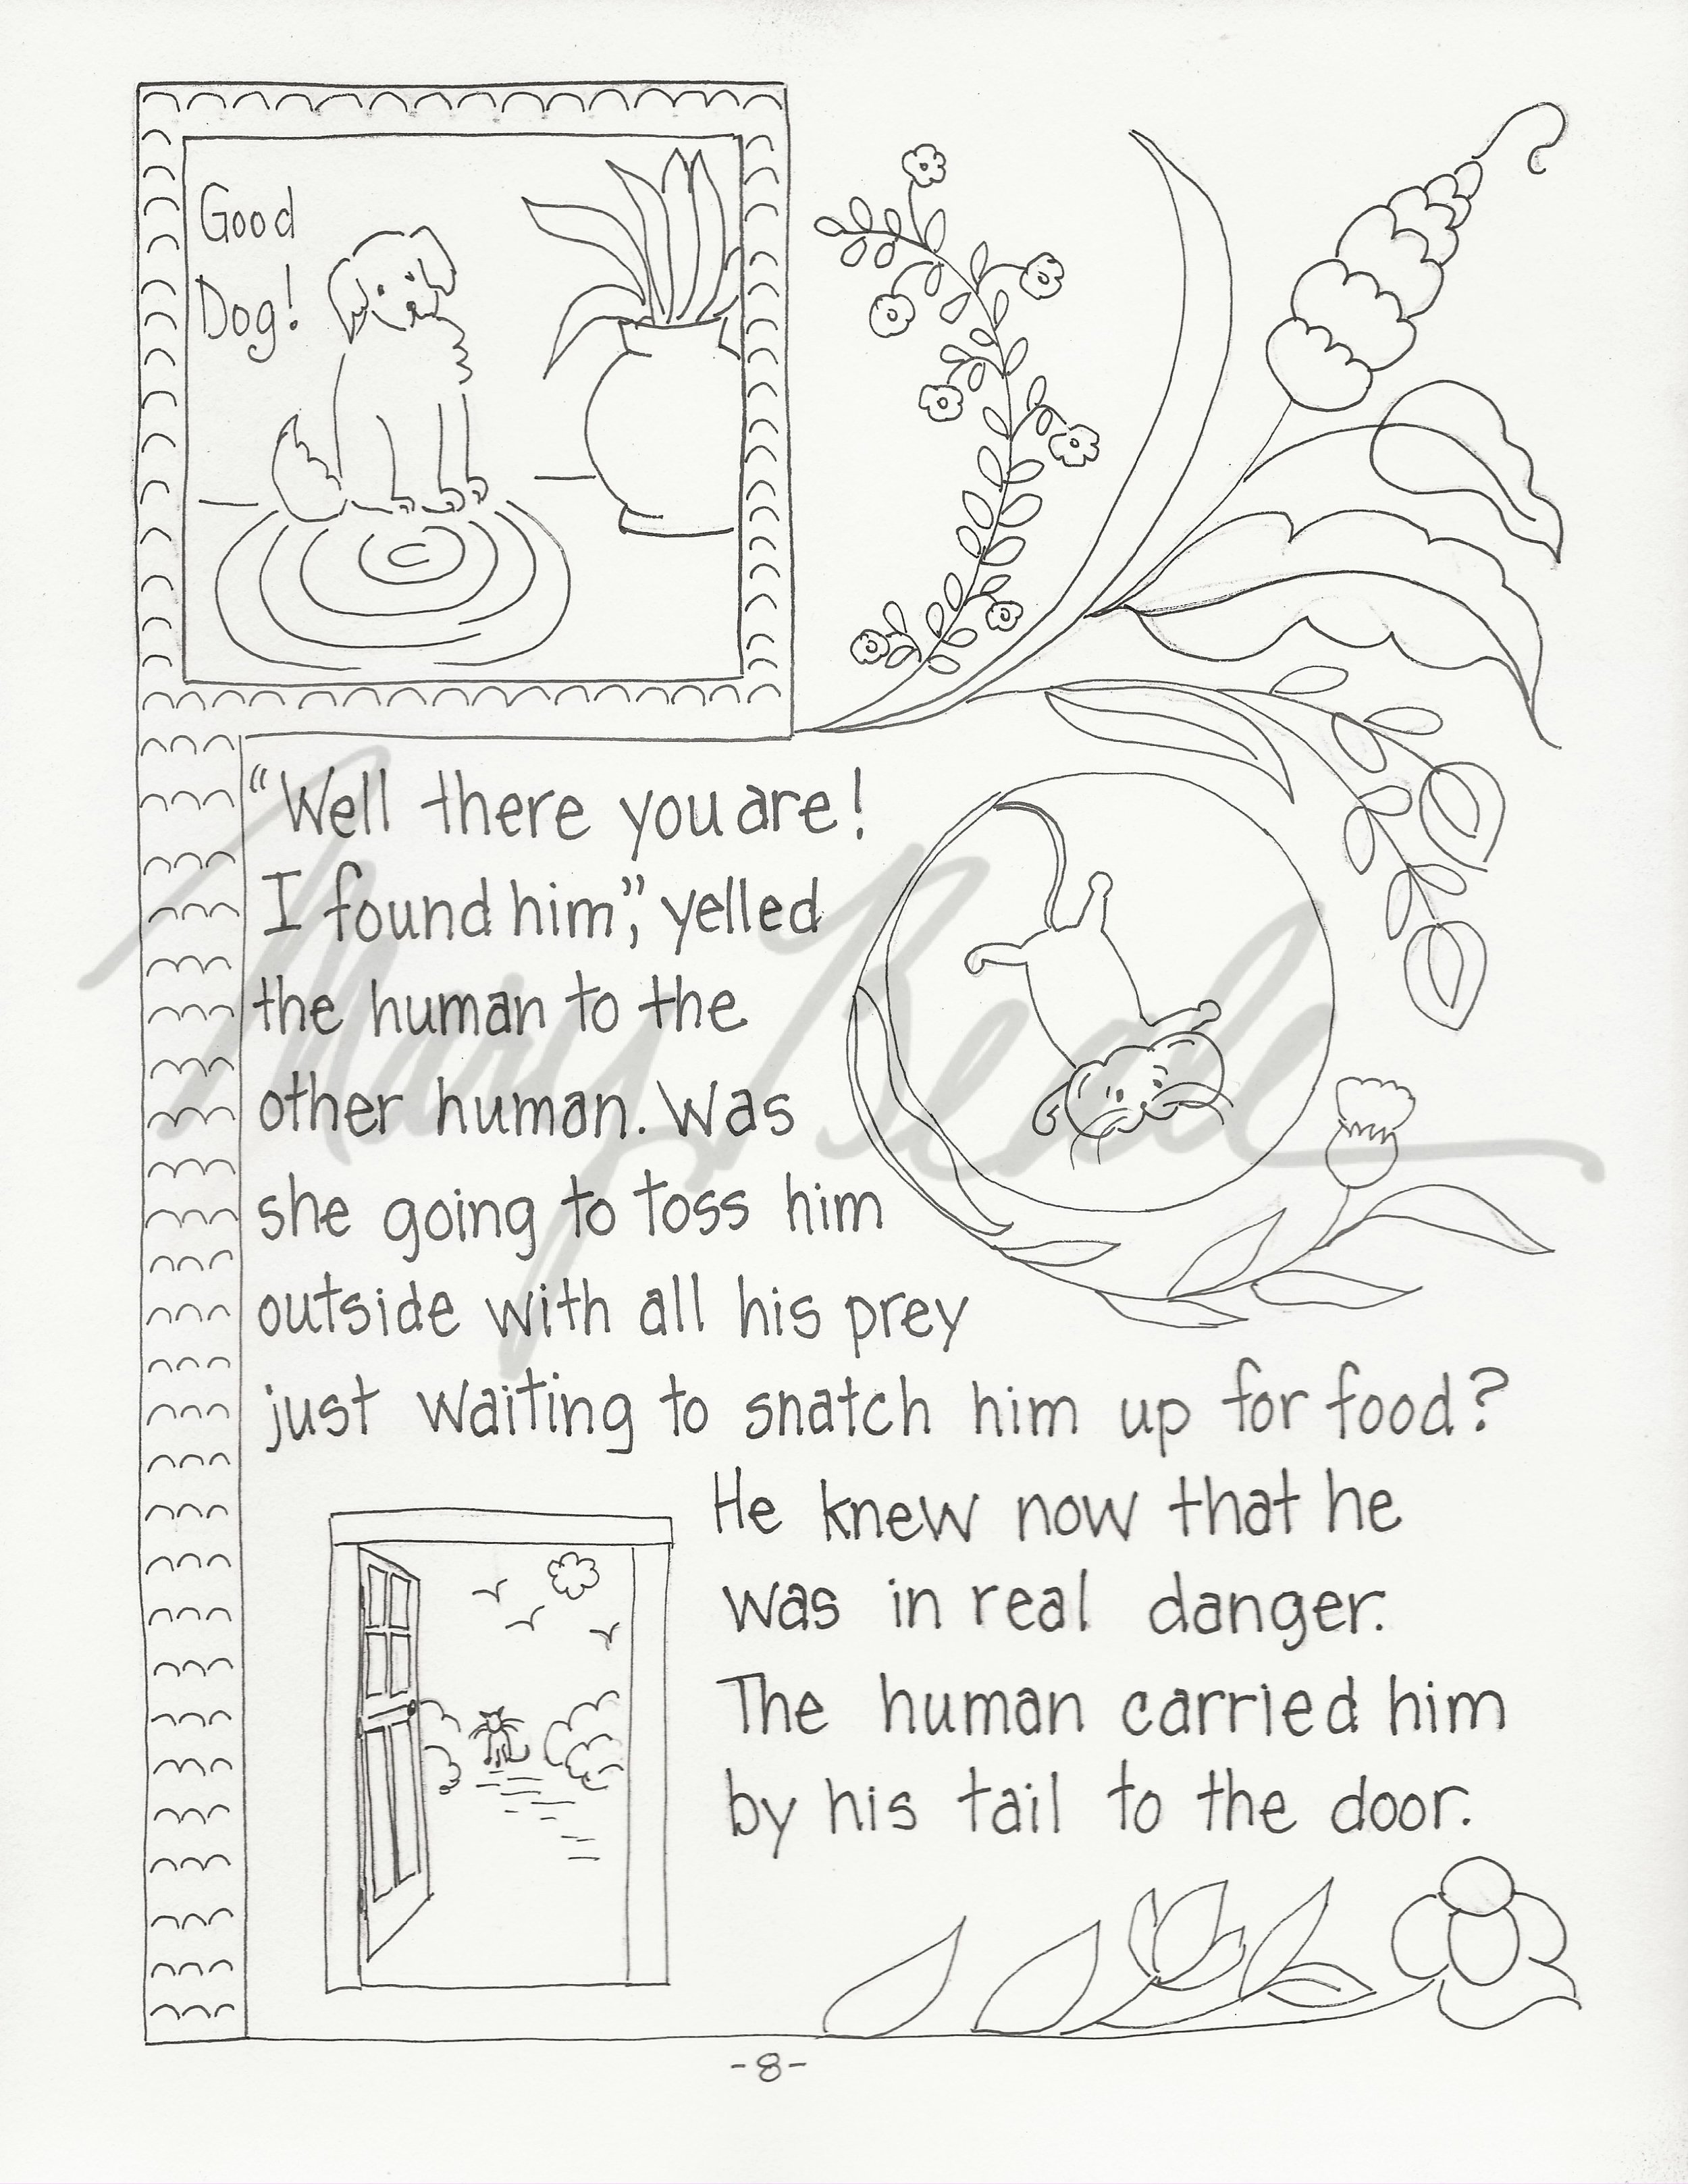 Good
Dog!
"Well there you are!
I found him," yelled
the human to the
other human. Was
she going to toss him
outside with all his prey
just waiting to snatch him up for food?
He knew now that he
was in real danger.
The human carried him
by his tail to the door.
-8-
Mary Beale